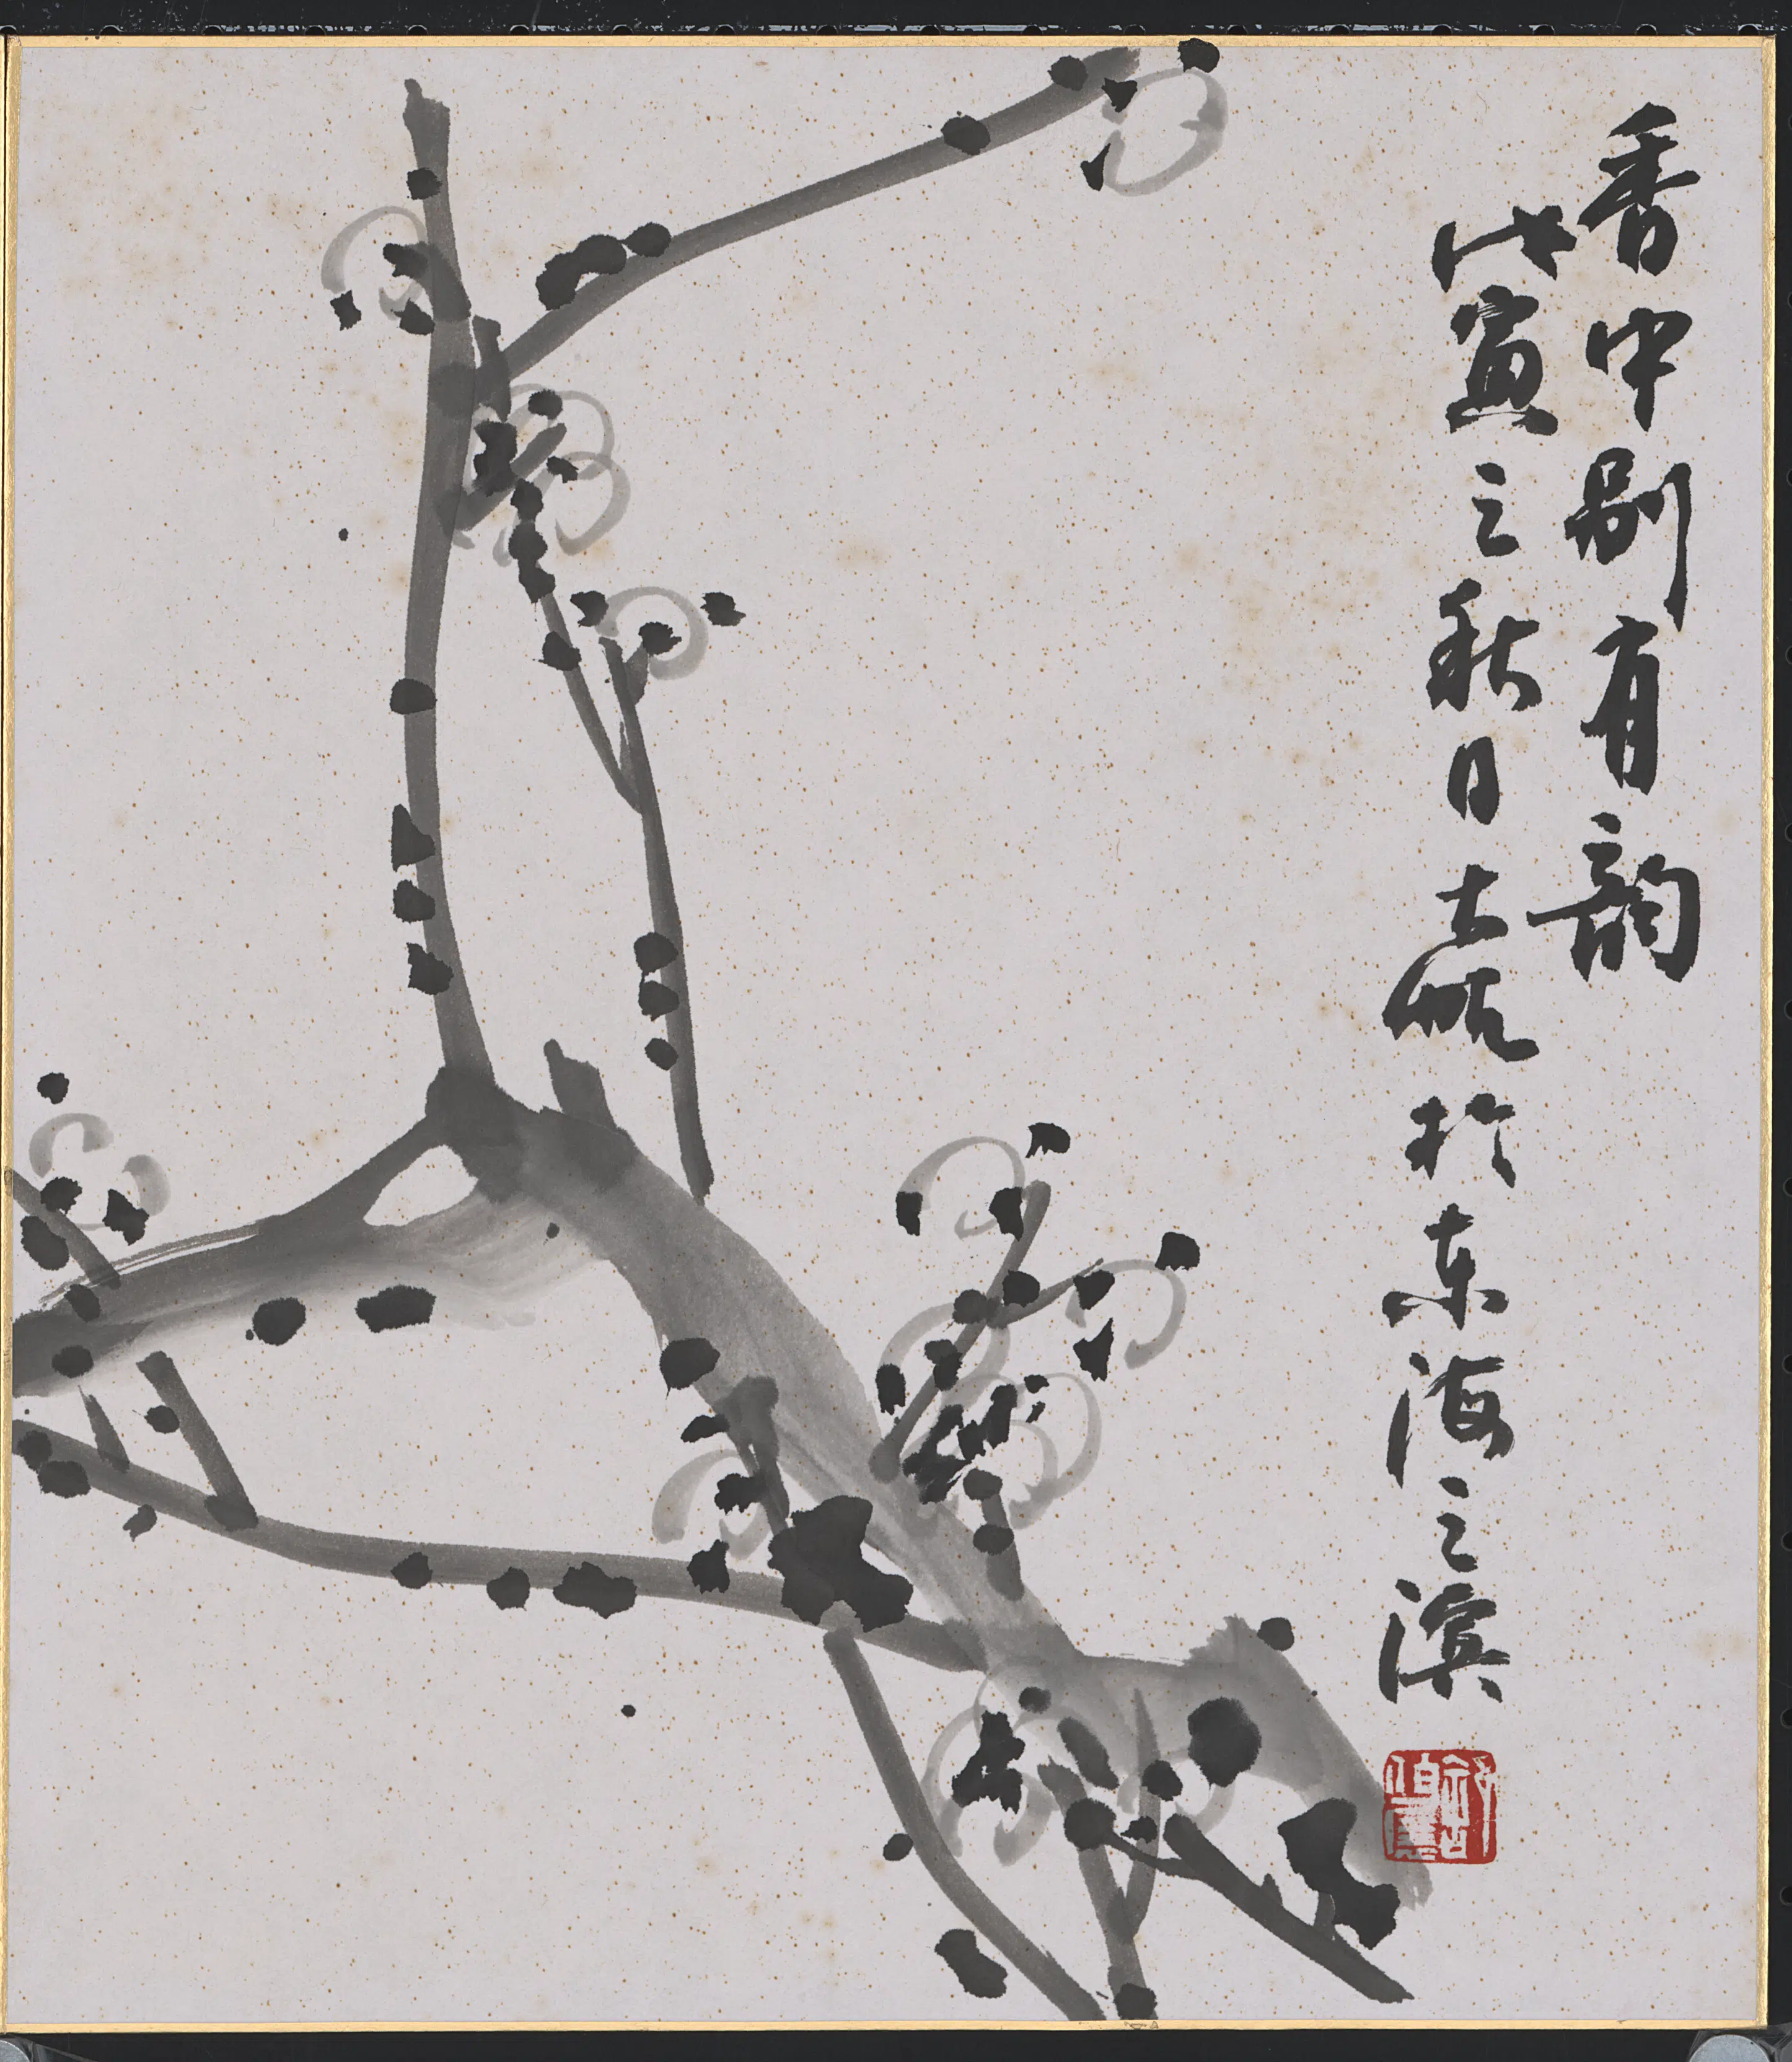 香中别有韵
戊寅之秋日士於东海之滨